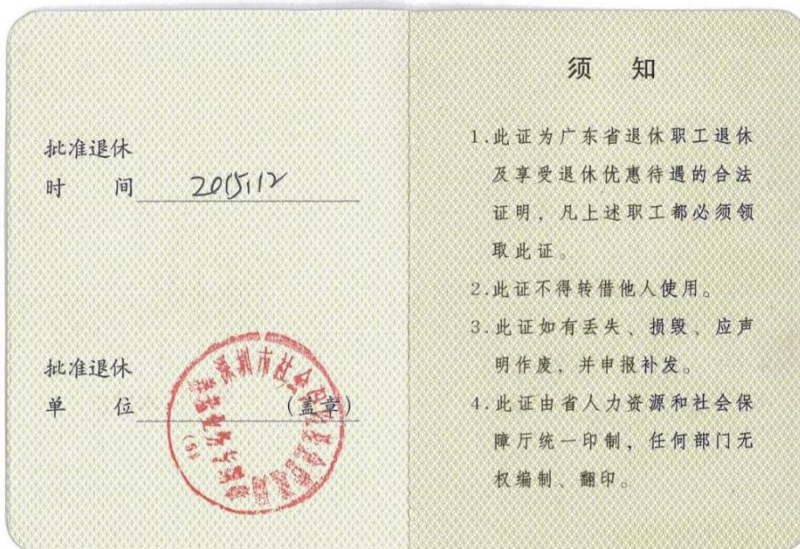 批准退休
时 间 2015.12
批准退休
单 位 (盖章)
深圳市社会保险基金管理局
(5)
须 知
1.此证为广东省退休职工退休
及享受退休优惠待遇的合法
证明，凡上述职工都必须领
取此证。
2.此证不得转借他人使用。
3.此证如有丢失、损毁、应声
明作废，并申报补发。
4.此证由省人力资源和社会保
障厅统一印制，任何部门无
权编制、翻印。